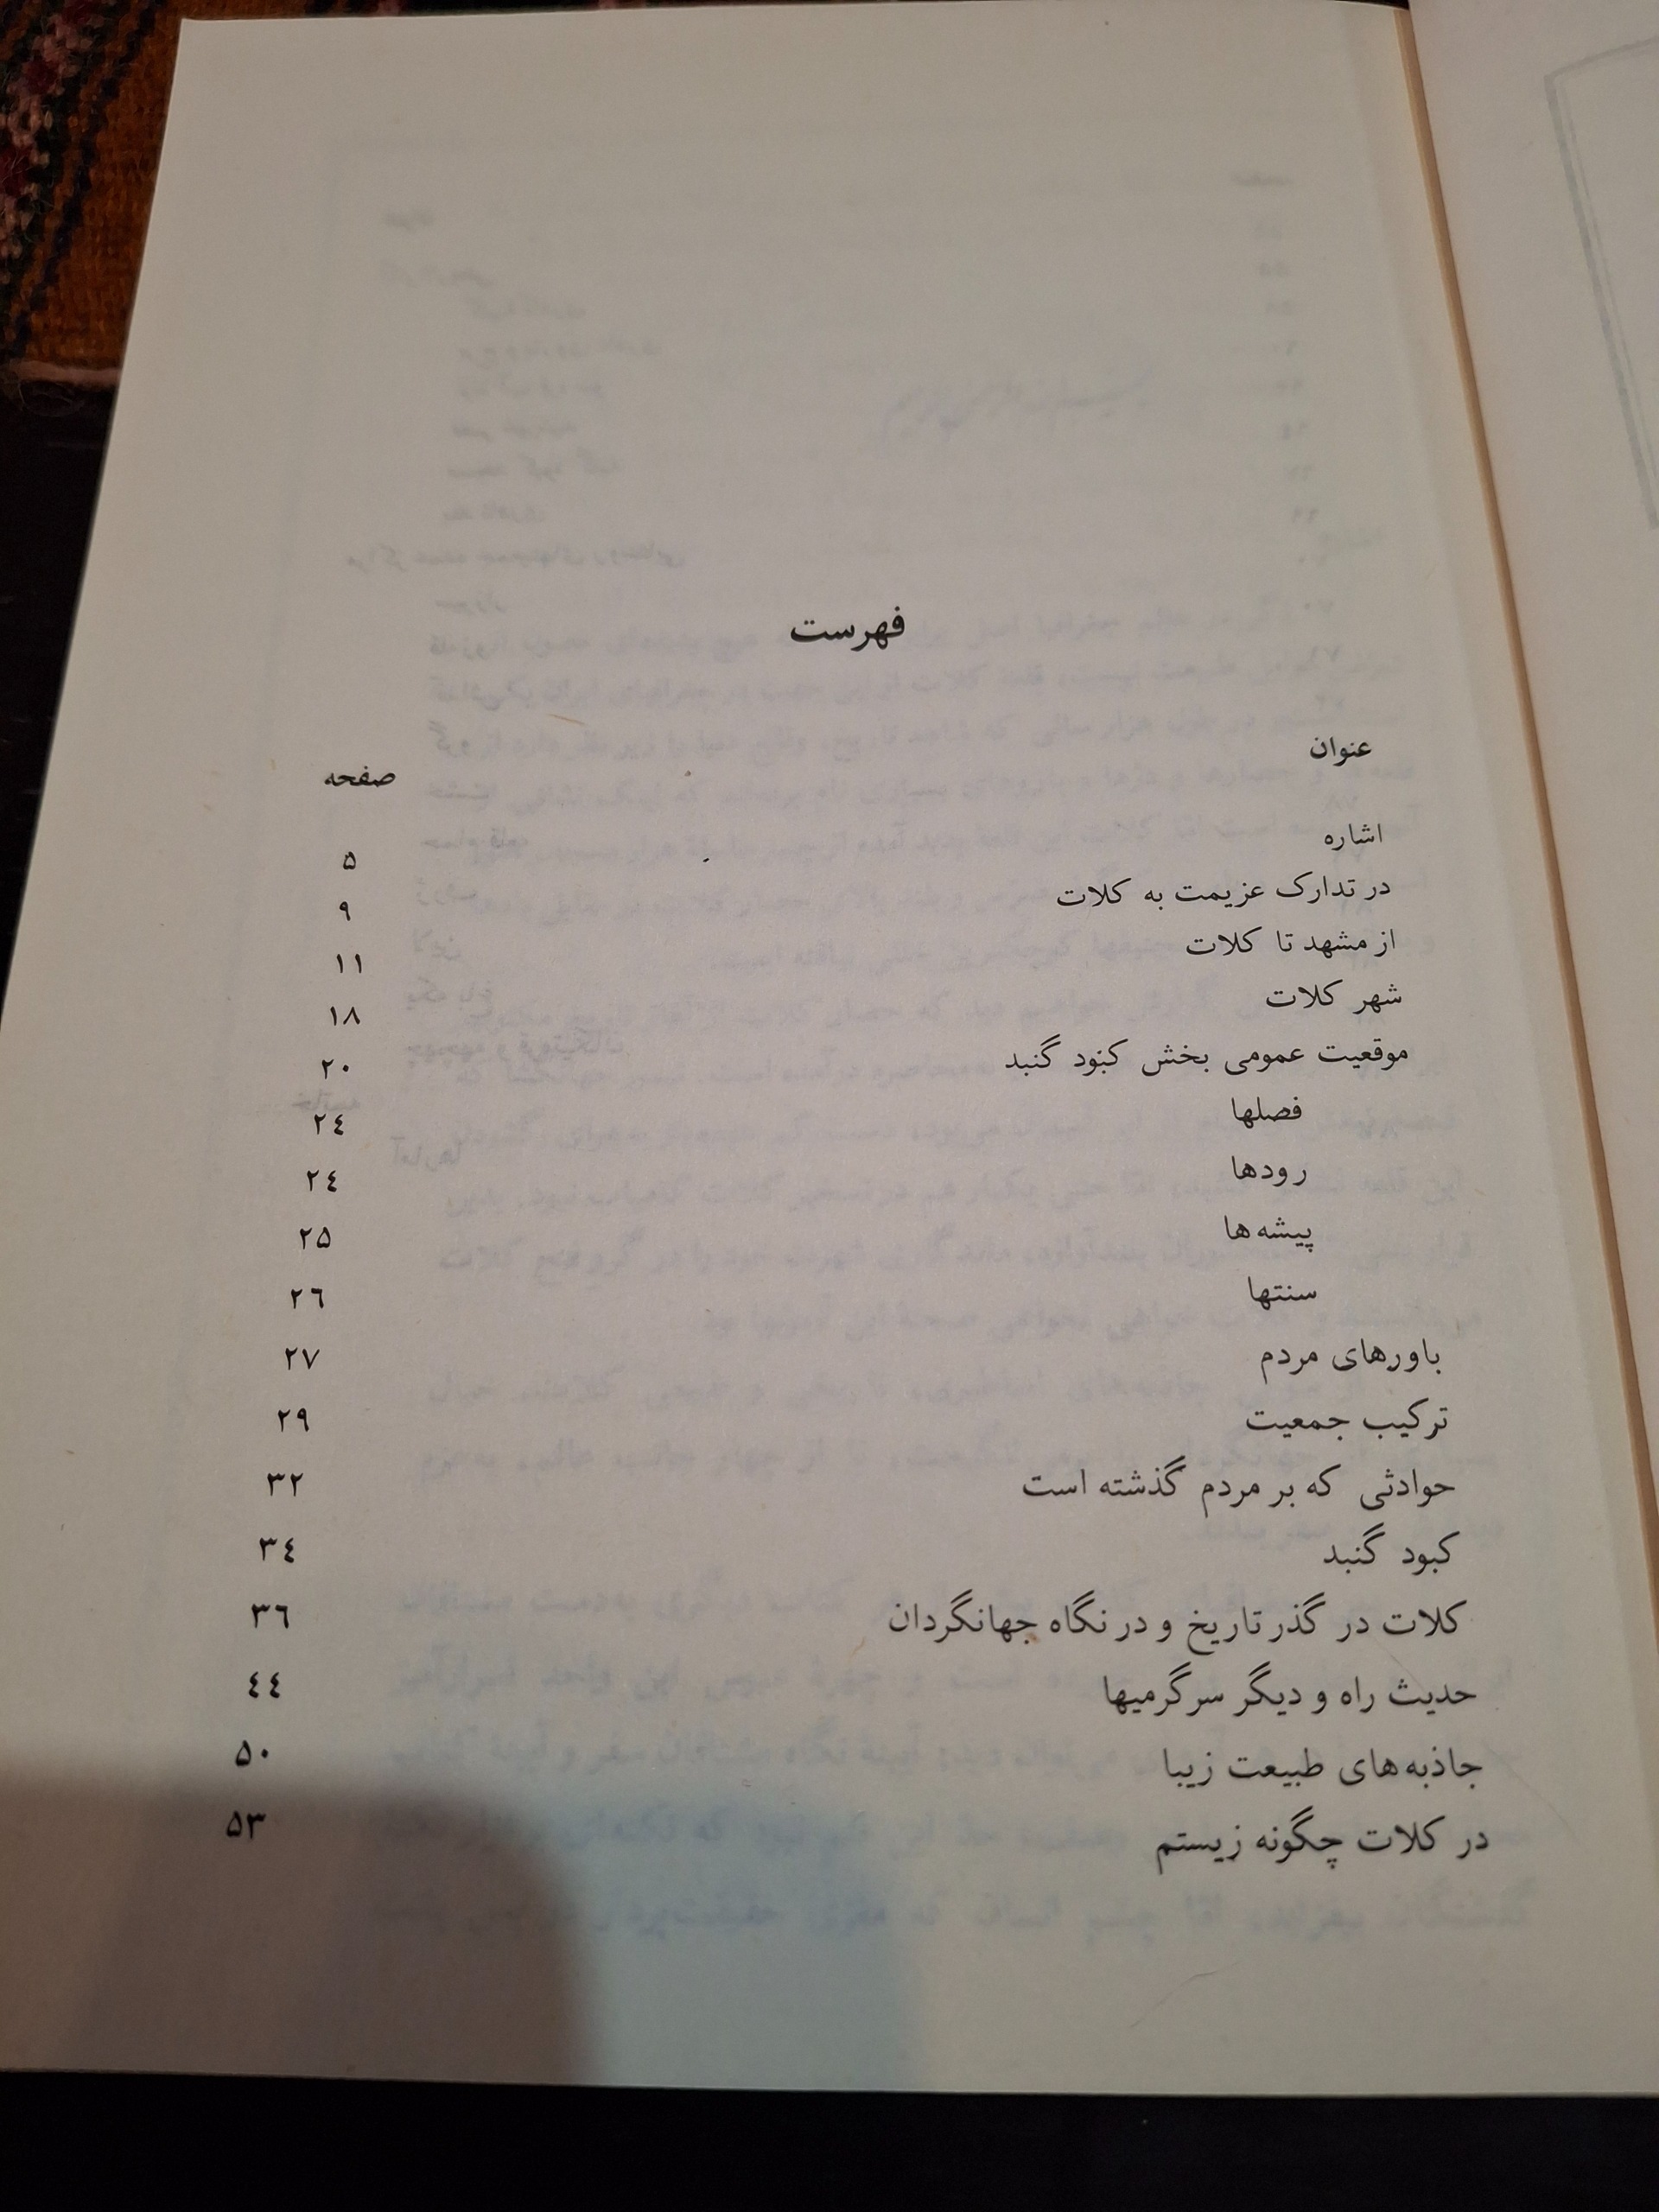 فهرست
عنوان صفحه
اشاره ۵
در تدارک عزیمت به کلات ۹
از مشهد تا کلات ۱۱
شهر کلات ۱۸
موقعیت عمومی بخش کنبود گنبد ۲۰
فصلها ۲٤
رودها ۲٤
پیشه ها ۲۵
سنتها ۲٦
باورهای مردم ۲۷
ترکیب جمعیت ۲۹
حوادثی که بر مردم گذشته است ۳۲
کبود گنبد ۳٤
کلات در گذر تاریخ و در نگاه جهانگردان ۳٦
حدیث راه و دیگر سرگرمیها ٤٤
جاذبه های طبیعت زیبا ۵۰
در کلات چگونه زیستم ۵۳